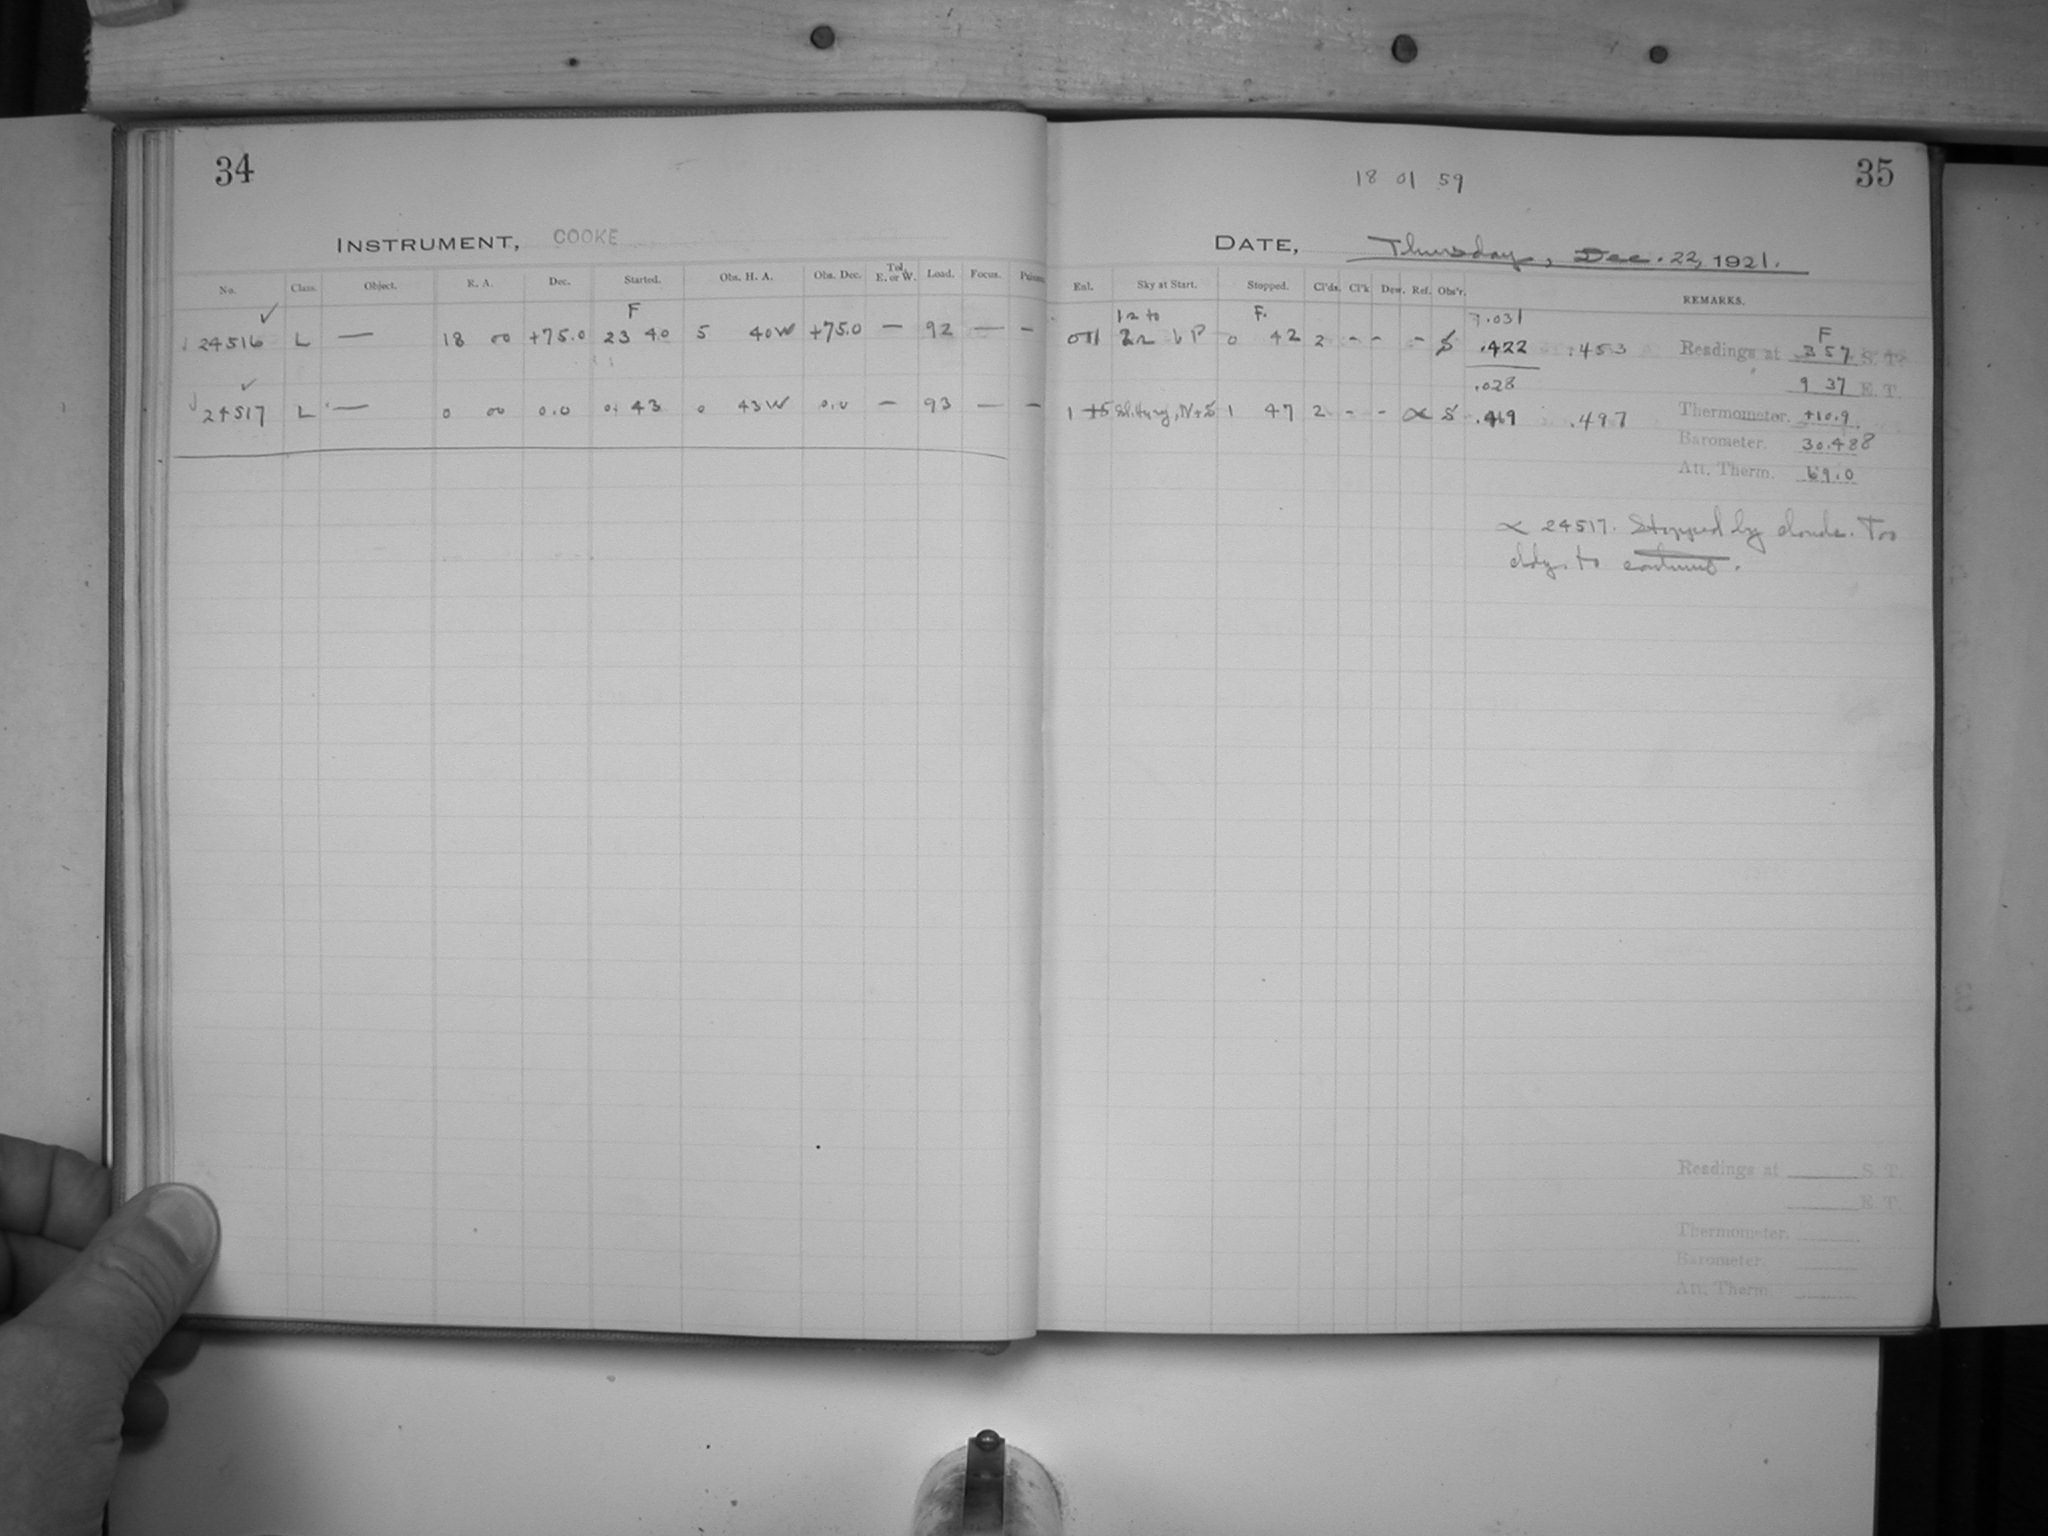 34
INSTRUMENT, COOKE
No. Class. Object. R. A. Dec. Started. Obs. H. A. Obs. Dec. Tel. E. or W. Load. Focus.
F
24516 L — 18 00 +75.0 23 40 5 40W +75.0 — 92 — —
24517 L — 0 00 0.0 0 43 0 43W 0.0 — 93 — —
18 01 59
35
DATE, Thursday, Dec. 22, 1921.
Ent. Sky at Start. Stopped. Cl'ds. Cl'k Dew. Ref. Obs'r. REMARKS.
12 to F. 7.031
0 42 2 - - - S .422 .453
Readings at F 3 57 S. T.
.028
9 37 E. T.
1 N+S 1 47 2 - - α S .419 .497
Thermometer. +10.9
Barometer. 30.488
Att. Therm. 69.0
α 24517. Stopped by clouds. Too
cldy. to continue.
Readings at S. T.
E. T.
Thermometer.
Barometer.
Att. Therm.